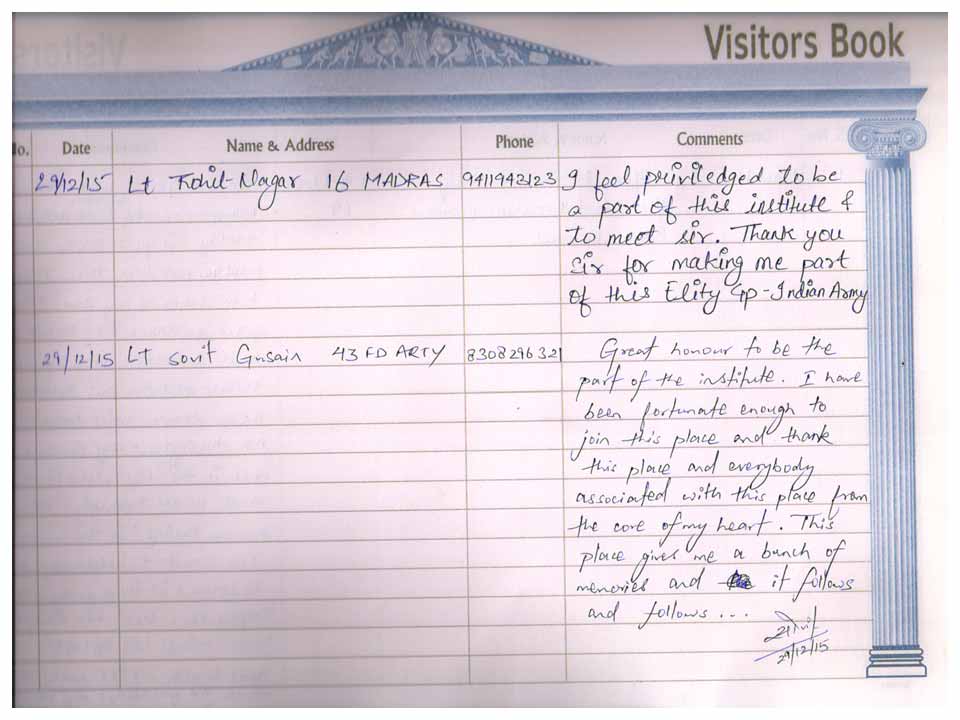 Visitors Book
No. Date Name & Address Phone Comments
29/12/15 Lt Rohit Nagar 16 MADRAS 9411942123 I feel priviledged to be
a part of this institute &
to meet sir. Thank you
Sir for making me part
of this Elity Gp - Indian Army
29/12/15 Lt Sovit Gusain 43 FD ARTY 8308296321 Great honour to be the
part of the institute. I have
been fortunate enough to
join this place and thank
this place and everybody
associated with this place from
the core of my heart. This
place gives me a bunch of
memories and it follows
and follows...
29/12/15